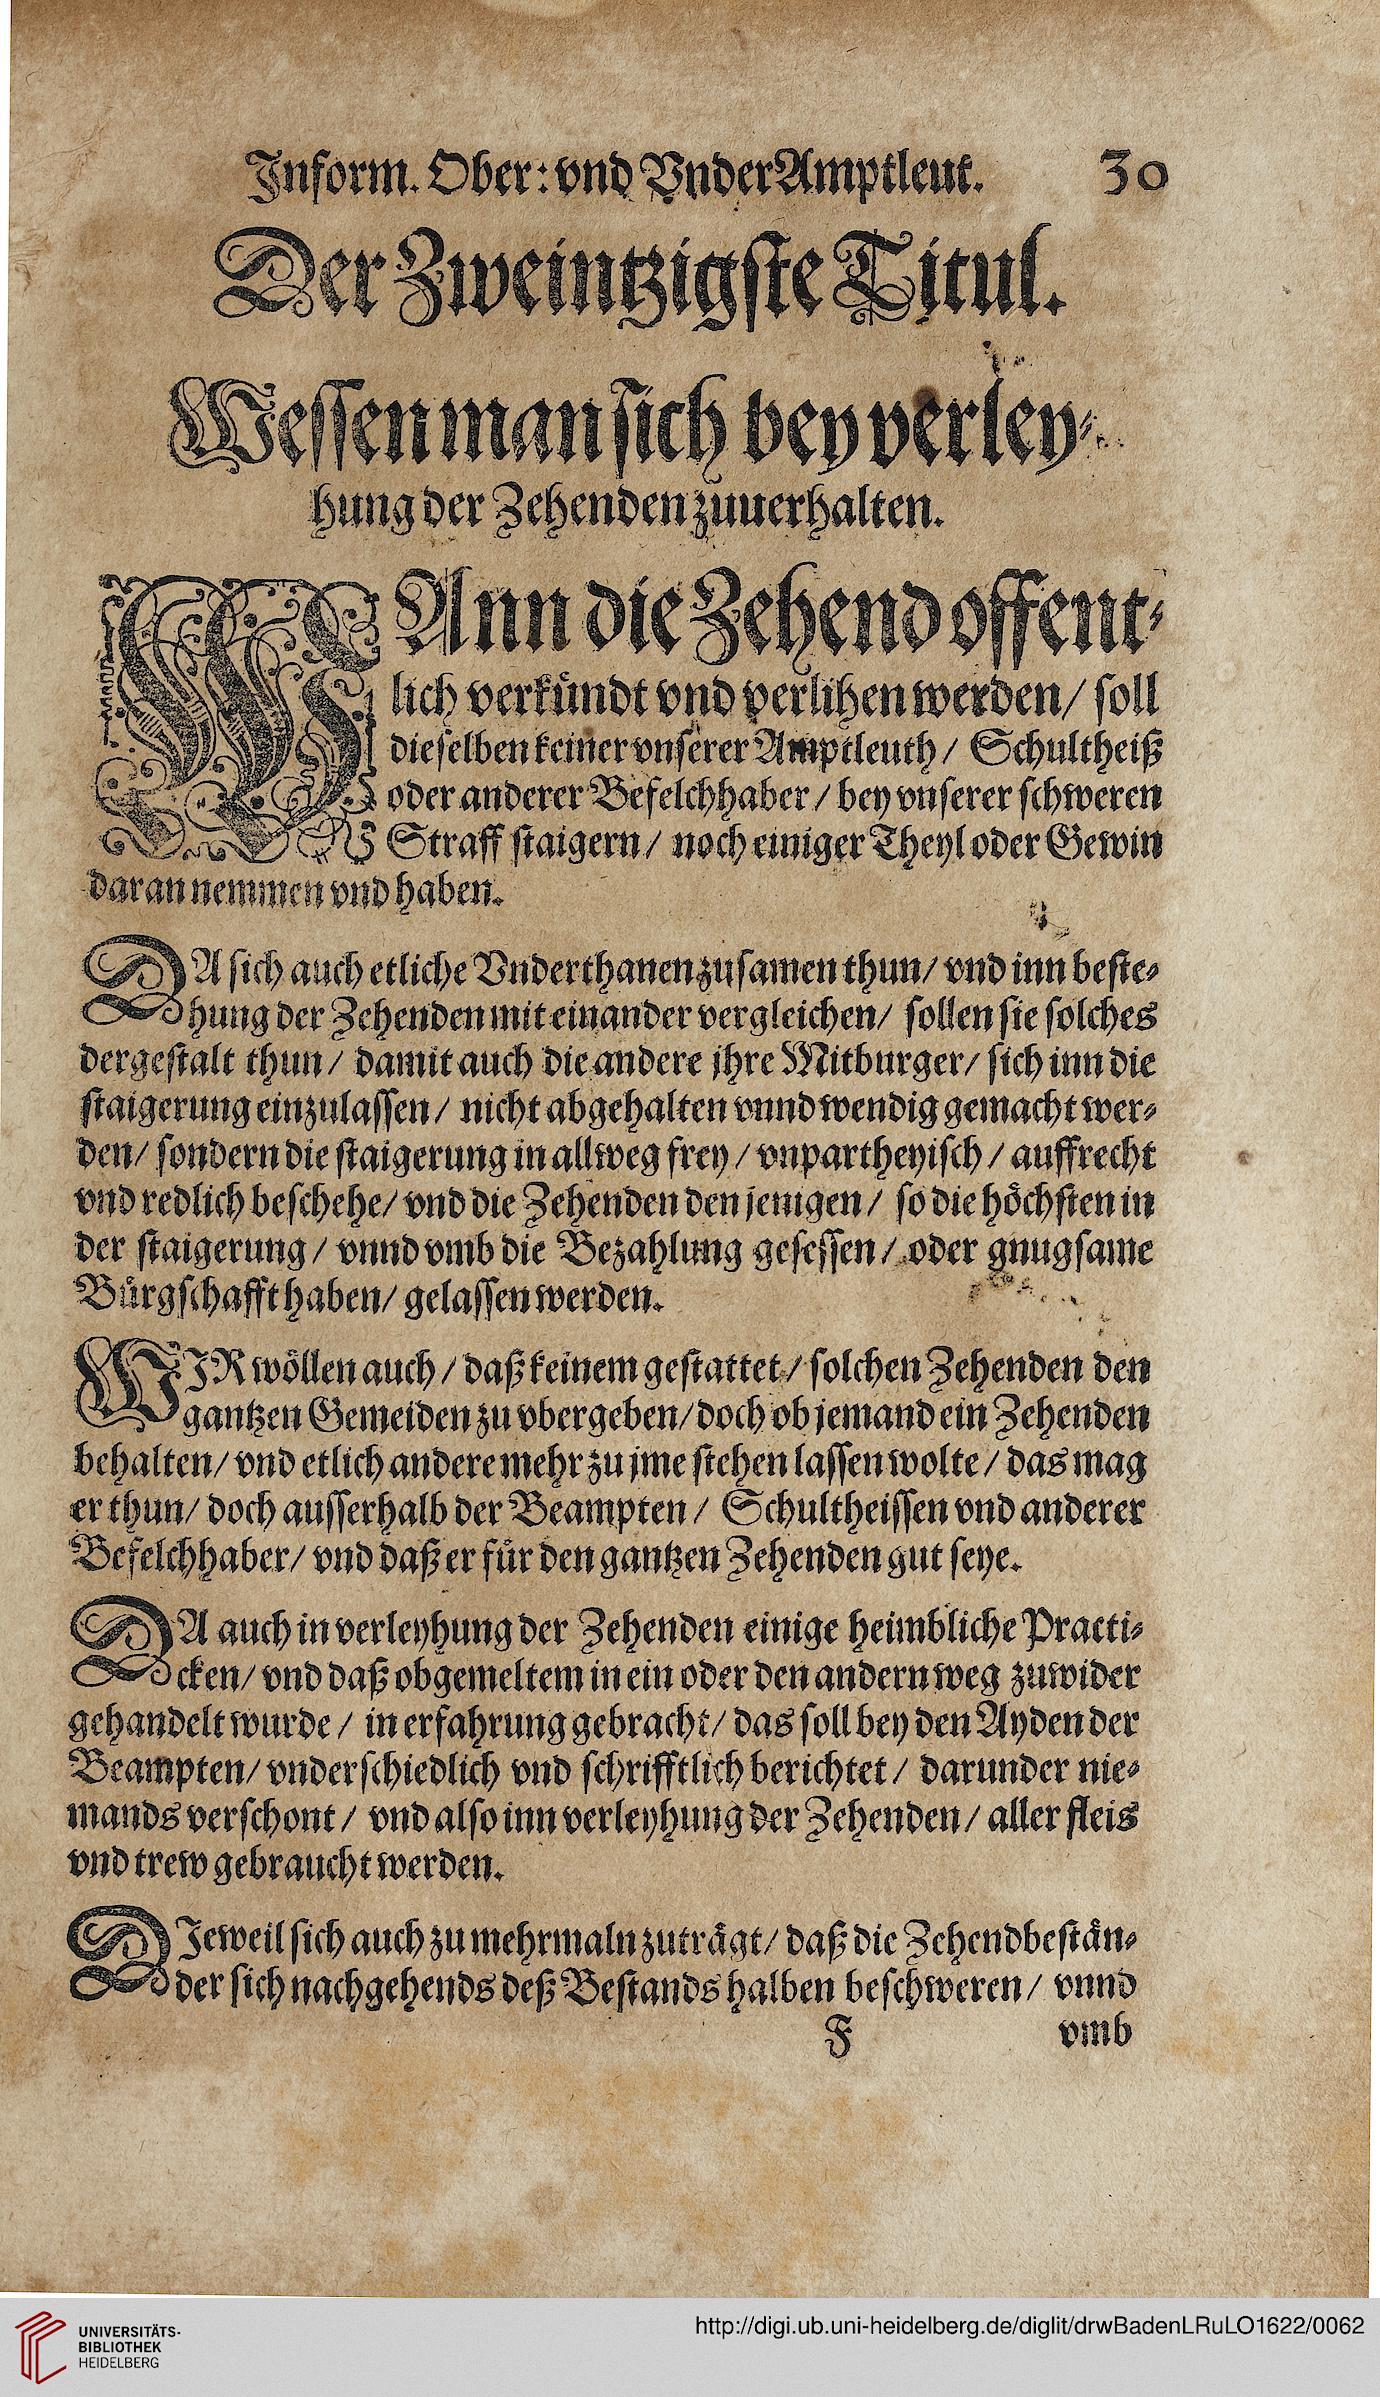 Inform. Ober: vnd VnderAmptleut. 30
Der Zweintzigste Titul.
Wessen man sich bey verley-
hung der Zehenden zuuerhalten.
WAnn die Zehend offent-
lich verkündt vnd verlihen werden/ soll
dieselben keiner vnserer Amptleuth/ Schultheiß
oder anderer Befelchhaber/ bey vnserer schweren
Straff staigern/ noch einiger Theyl oder Gewin
daran nemmen vnd haben.
DA sich auch etliche Vnderthanen zusamen thun/ vnd inn beste-
hung der Zehenden mit einander vergleichen/ sollen sie solches
dergestalt thun/ damit auch die andere jhre Mitburger/ sich inn die
staigerung einzulassen/ nicht abgehalten vnnd wendig gemacht wer-
den/ sondern die staigerung in allweg frey/ vnpartheyisch/ auffrecht
vnd redlich beschehe/ vnd die Zehenden den jenigen/ so die höchsten in
der staigerung/ vnnd vmb die Bezahlung gesessen/ oder gnugsame
Bürgschafft haben/ gelassen werden.
WIR wöllen auch/ daß keinem gestattet/ solchen Zehenden den
gantzen Gemeiden zu vbergeben/ doch ob jemand ein Zehenden
behalten/ vnd etlich andere mehr zu jme stehen lassen wolte/ das mag
er thun/ doch ausserhalb der Beampten/ Schultheissen vnd anderer
Befelchhaber/ vnd daß er für den gantzen Zehenden gut seye.
DA auch in verleyhung der Zehenden einige heimbliche Practi-
cken/ vnd daß obgemeltem in ein oder den andern weg zuwider
gehandelt wurde/ in erfahrung gebracht/ das soll bey den Ayden der
Beampten/ vnderschiedlich vnd schrifftlich berichtet/ darunder nie-
mands verschont/ vnd also inn verleyhung der Zehenden/ aller fleis
vnd trew gebraucht werden.
DIeweil sich auch zu mehrmaln zuträgt/ daß die Zehendbestän-
der sich nachgehends deß Bestands halben beschweren/ vnnd
F vmb
UNIVERSITÄTS-
BIBLIOTHEK
HEIDELBERG
http://digi.ub.uni-heidelberg.de/diglit/drwBadenLRuLO1622/0062